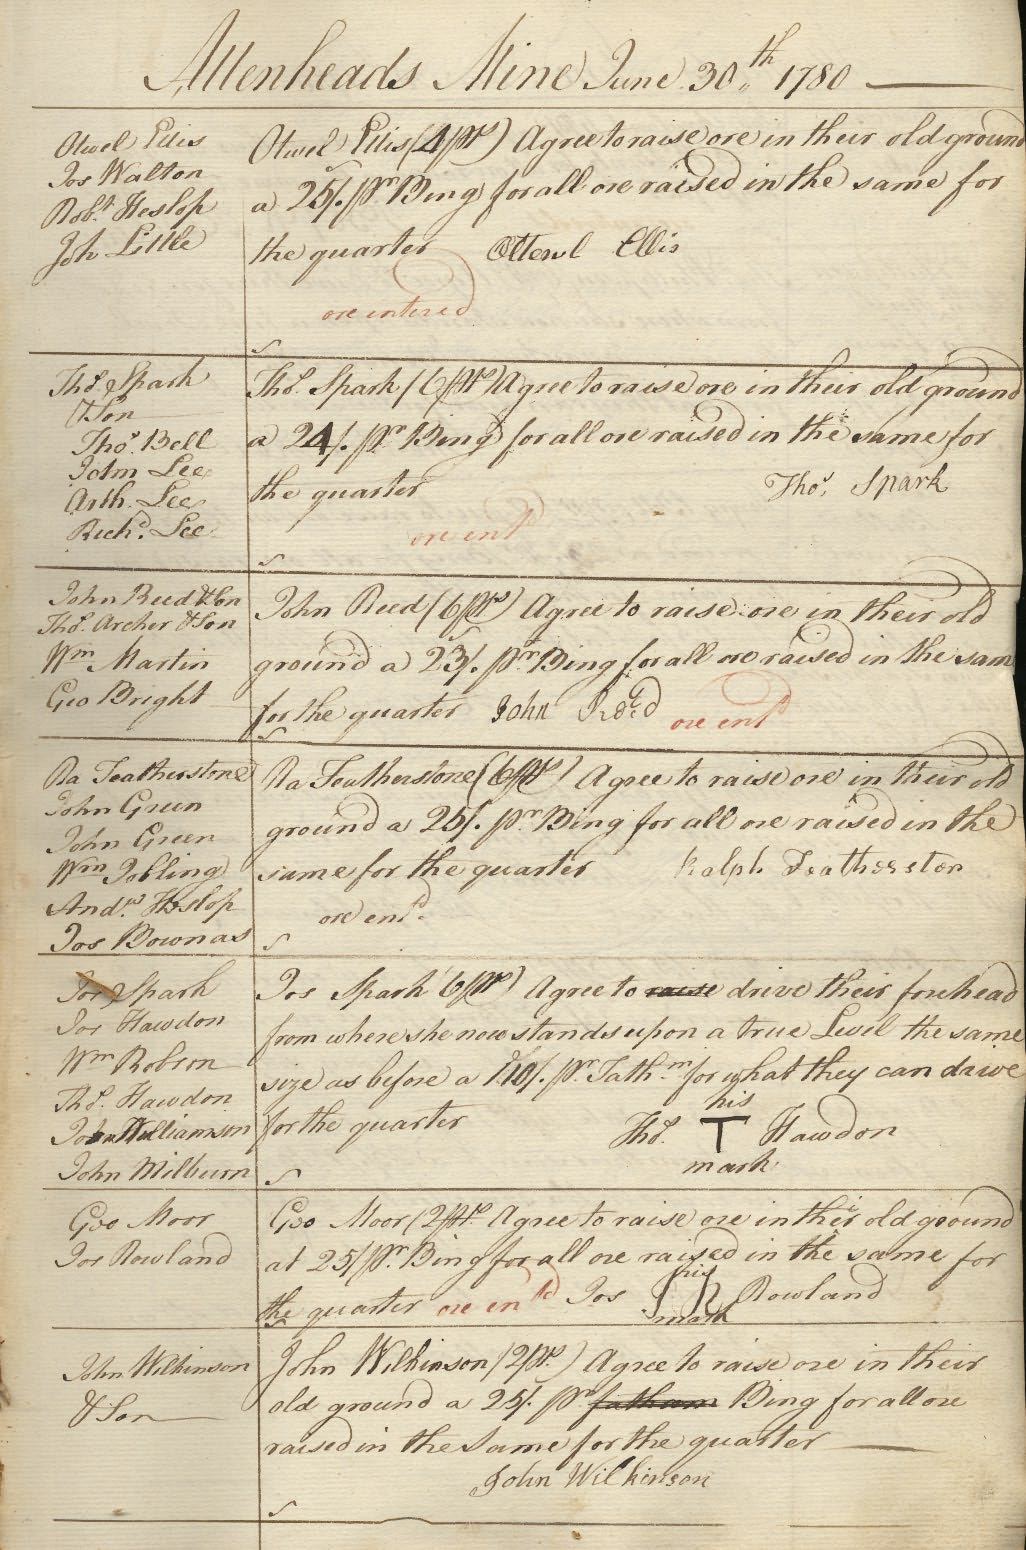 Allenheads Mine June 30th 1780
Otwel Ellis
Jos Walton
Robt. Heslop
Joh Little
Otwel Ellis (4 ptrs) Agree to raise ore in their old ground
a 25/. pr. Bing for all ore raised in the same for
the quarter Ottewl Ellis
ore intered
Thos. Spark
& Son
Thos. Bell
John Lee
Arth. Lee
Richd. Lee
Thos. Spark (6 ptrs) Agree to raise ore in their old ground
a 24/. pr Bing for all ore raised in the same for
the quarter Thos. Spark
ore entd
John Reed & Son
Thos. Archer & Son
Wm Martin
Geo Bright
John Reed (6 ptrs) Agree to raise ore in their old
ground a 23/. pr Bing for all ore raised in the same
for the quarter John Reed ore entd
Ra Featherstone
John Green
John Green
Wm Jobling
Andw. Heslop
Jos Bownas
Ra Featherstone (6 ptrs) Agree to raise ore in their old
ground a 25/. pr. Bing for all ore raised in the
same for the quarter Ralph Featherston
ore entd.
Jos Spark
Jos Hawdon
Wm Robson
Thos. Hawdon
John Williamson
John Milburn
Jos Spark (6 ptrs) Agree to raise drive their forehead
from where she now stands upon a true Level the same
size as before a 110/. pr. Fathm for what they can drive
for the quarter
his
Thos. T Hawdon
mark
Geo Moor
Jos Rowland
Geo Moor (2 ptrs. Agree to raise ore in their old ground
at 25/ pr. Bing for all ore raised in the same for
his
the quarter ore entd Jos Rowland
mark
John Wilkinson
& Son
John Wilkinson (2 ptrs.) Agree to raise ore in their
old ground a 25/. pr fathom Bing for all ore
raised in the same for the quarter
John Wilkinson